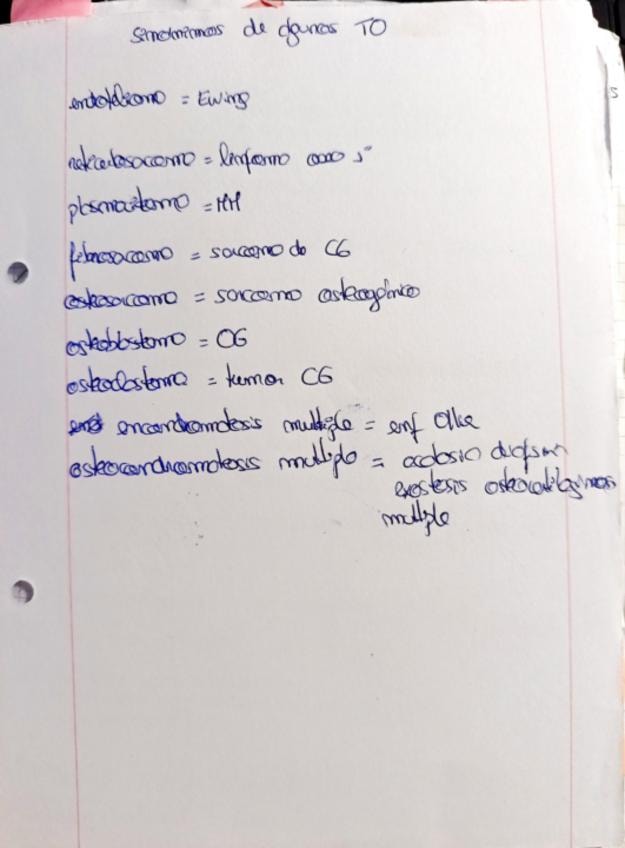 sinonimos de algunos TO
endotelioma = Ewing
reticulosarcoma = linfoma óseo 1º
plasmocitoma = MM
fibrosarcoma = sarcoma de CG
osteosarcoma = sarcoma osteogénico
osteoblastoma = OG
osteoclastoma = tumor CG
encondromatosis multiple = enf Ollier
osteocondromatosis multiple = aclasia diafisaria
exostosis osteocartilaginosas
multiple